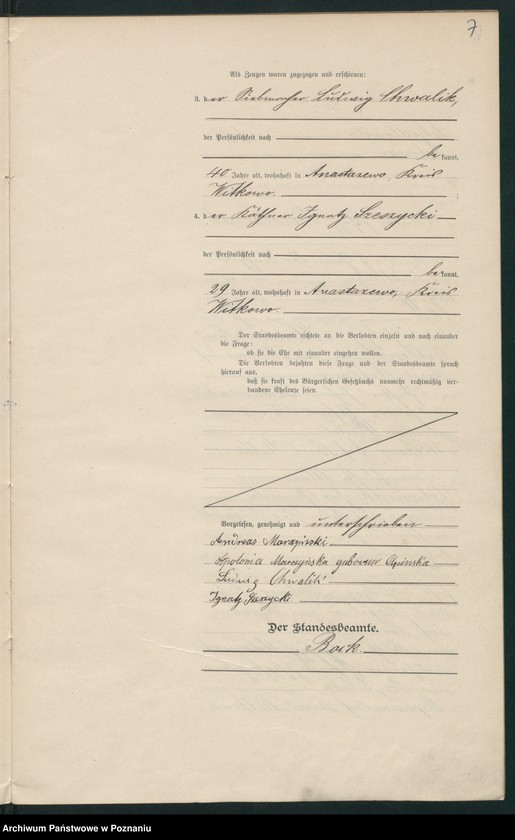 7
Als Zeugen waren zugezogen und erschienen:
3. der Siebmacher Ludwig Chwalik,
der Persönlichkeit nach
bekannt,
40 Jahre alt, wohnhaft in Anastazewo, Kreis
Witkowo.
4. der Käthner Ignatz Szeszycki
der Persönlichkeit nach
bekannt,
29 Jahre alt, wohnhaft in Anastazewo, Kreis
Witkowo.
Der Standesbeamte richtete an die Verlobten einzeln und nach einander
die Frage:
ob sie die Ehe mit einander eingehen wollen.
Die Verlobten bejahten diese Frage und der Standesbeamte sprach
hierauf aus,
daß sie kraft des Bürgerlichen Gesetzbuchs nunmehr rechtmäßig ver-
bundene Eheleute seien.
Vorgelesen, genehmigt und unterschrieben
Andreas Marzyński
Apolonia Marczyńska geborene
Ludwig Chwalik
Ignatz Szeszycki
Der Standesbeamte.
Bock.
Archiwum Państwowe w Poznaniu